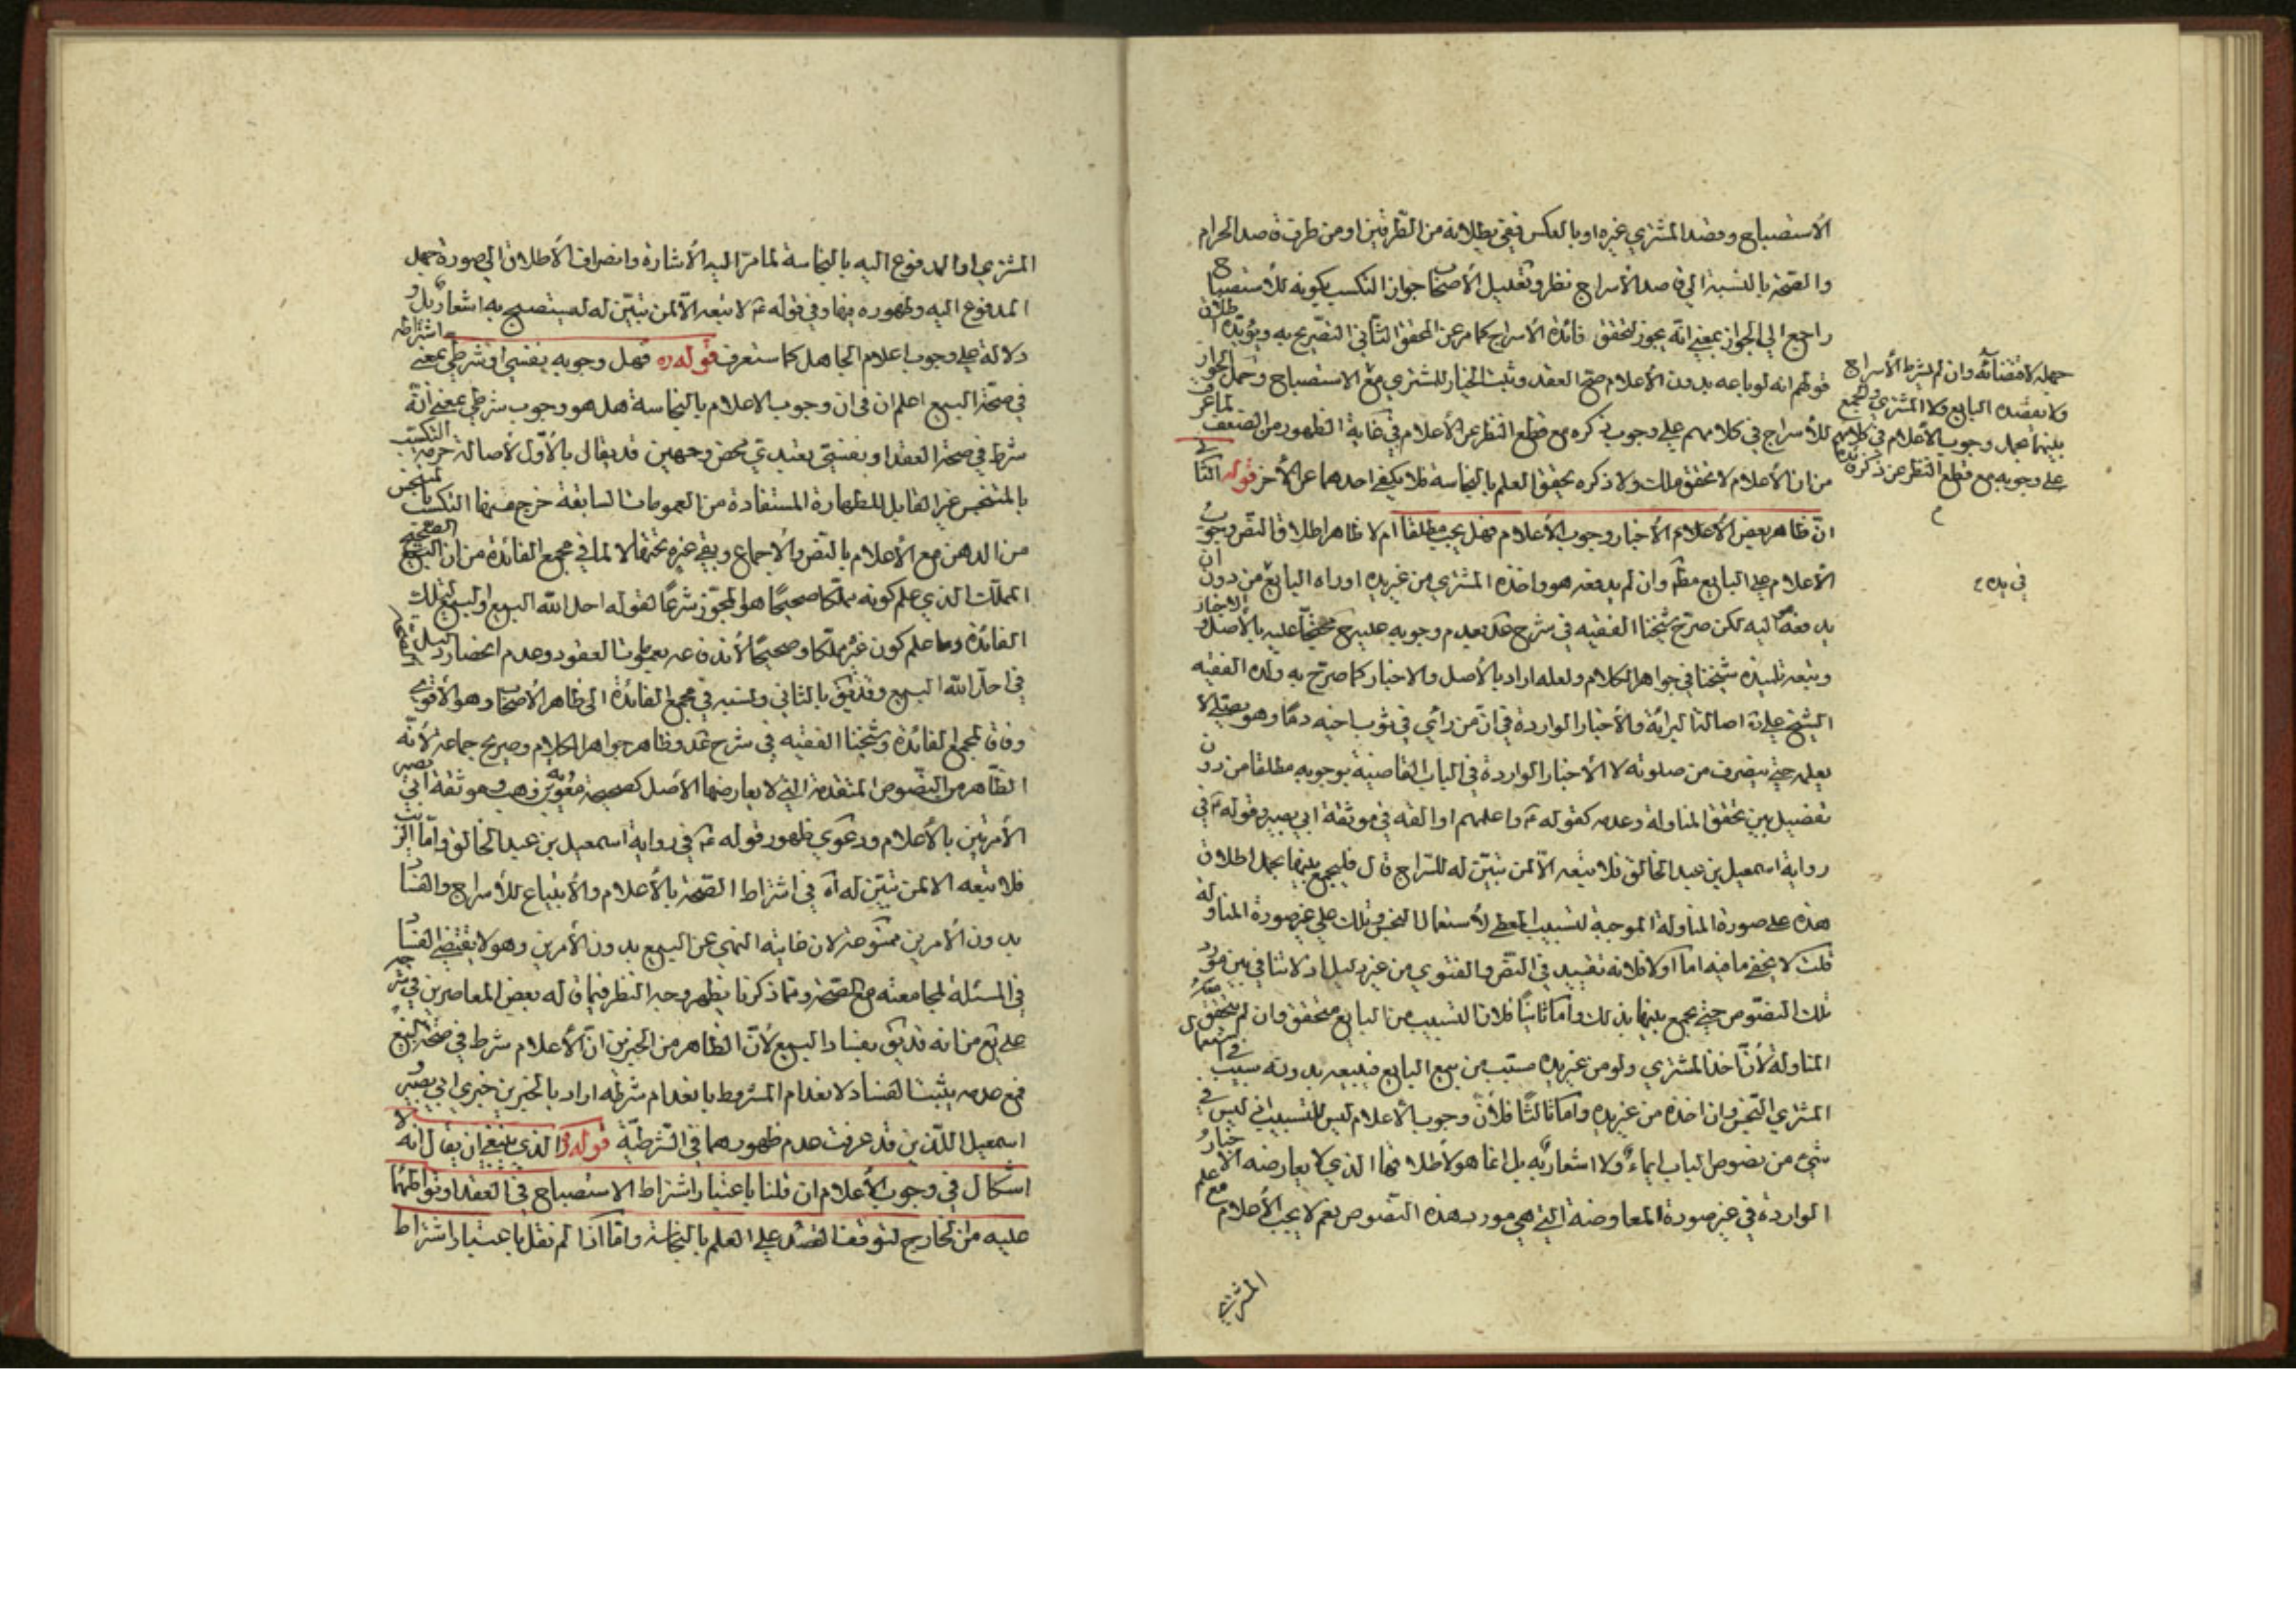 الاستصباح وقصد المشتري غيره او بالعكس ففي بطلانه من الطرفين او من طرف قاصد الحرام
والصحة بالنسبة الى قاصد الاسراج نظر وتعليل الأصحاب جواز التكسب بكونه للاستصباح
راجع الى الجواز بمعنى انّه يجوز لتحقق فائدة الاسراج كما مر عن المحقق الثاني التصريح به ويؤيّده اطلاق
قولهم انه لو باعه بدون الأعلام صح العقد وثبت الخيار للمشتري مع الاستصباح وحمل الجواز
للأسراج في كلامهم على وجوب ذكره مع قطع النظر عن الأعلام في غاية الظهور من الضعف لما عرفت
من ان الأعلام لا تحقق ولا ذكره يحقق العلم بالنجاسة فلا يكفي احدهما عن الأخر قوله الثالث
انّ ظاهر بعض الأعلام الأخبار وجوب الأعلام فهل يجب مطلقا ام لا ظاهر اطلاق النص وجوب
الأعلام على البايع مطم وان لم يدفعه هو واخذه المشتري من غير يده او راه البايع من دون ان
يدفعه اليه لكن صرّح شيخنا الفقيه في شرح عد بعدم وجوبه عليه ح محتجّا عليه بالأصل والاخبار
وتبعه تلميذه شيخنا في جواهر الكلام ولعله اراد بالأصل والاخبار كما صرّح به ولده الفقيه
الشيخ علي اصالة البرائة والأخبار الواردة في انّ من رأى في ثوب اخيه دمًا وهو يصلّي لا
يعلمه حتى ينصرف من صلوته لا الأخبار الواردة في الباب القاضية بوجوبه مطلقا من دون
تفصيل بين تحقق المناولة وعدمه كقوله ع واعلمهم اذا بعته في موثقة ابي بصير وقوله ع في
رواية اسمعيل بن عبد الخالق فلا تبعه الّا لمن تبيّن له للسّراج قال فليجمع بينهما بحمل اطلاق
هذه على صورة المناولة الموجبة لتسبيب المعطي لأستعمال النجس وتلك على غير صورة المناولة
قلت لا يخفى ما فيه اما اولا فلانه تقييد في النصّ والفتوى من غير دليل اذ لا تنافي بين مورد
تلك النصّوص حتى يجمع بينهما بذلك واما ثانيًا فلان التسبيب من البايع متحقق وان لم يتحقق
المناولة لأنّ اخذ المشتري ولو من غير يده مسبّب من بيع البايع فبيعه بدونه سبيب في استعمال
المشتري النّجس وان اخذه من غير يده واما ثالثًا فلأنّ وجوب الأعلام ليس للتسبيب اذ ليس في
شيء من نصوص الباب ايماء ولا اشعار به بل انما هو لأطلاقها الذي لا يعارضه الأخبار
الواردة في غير صورة المعاوضة التي هي مورد هذه النصّوص نعم لا يجب الأعلام مع علم
المشتري
حمله لاقتضائه وان لم يشرط الأسراج
ولا بقصده البايع ولا المشتري والجمع
بينهما بحمل وجوب الأعلام في كلامهم
على وجوبه مع قطع النظر عن ذكره
في يده
المشتري او المدفوع اليه بالنجاسة لما مرّ اليه الأشارة وانصراف الأطلاق الى صورة جهل
المدفوع اليه وظهوره فيها وفي قوله ع لا تبعه الّا لمن تبيّن له ليستصبح به اشعار بل و
دلالة على وجوب اعلام الجاهل كما ستعرف قوله ره فهل وجوبه نفسي او شرطي بمعنى اشتراطه
في صحّة البيع اعلم ان في ان وجوب الاعلام بالنجاسة هل هو وجوب شرطي بمعنى انّه
شرط في صحة العقد او نفسي تعبدي محض وجهين قد يقال بالأوّل لأصالة حرمة التكسّب
بالمتنجس غير القابل للطهارة المستفادة من العمومات السابقة خرج منها التكسّب بالمتنجس
من الدهن مع الأعلام بالنصّ والأجماع وبقي غيره تحتها لا لما في مجمع الفائدة من ان البيع الصحيح
المملّك الذي علم كونه مملّكا صحيحًا هو المجوّز شرعًا لقوله احل الله البيع
الفائدة وما علم كون غيره مملّكا وصحيحًا لأندفاعه بعمومات العقود وعدم انحصار دليل الصحّة
في احلّ الله البيع وقد يق بالثاني ونسبه في مجمع الفائدة الى ظاهر الأصحاب وهو الأقوى
وفاق لمجمع الفائدة وشيخنا الفقيه في شرح عد وظاهر جواهر الكلام وصريح جماعة لأنّه
الظاهر من النصّوص المتقدمة التي لا يعارضها الأصل كصحيحة معوية بن وهب وموثقة ابي بصير
الأمرتين بالأعلام ودعوى ظهور قوله ع في رواية اسمعيل بن عبد الخالق وامّا الزيت
فلا تبعه الا لمن تبيّن له آه في اشتراط الصّحة بالأعلام والأبتياع للأسراج والفساد
بدون الأمرين ممنوعة لان غايته النهي عن البيع بدون الأمرين وهو لا يقتضي الفساد
في المسئلة لمجامعته مع الصحة ومما ذكرنا يظهر وجه النظر فيما قاله بعض المعاصرين في شرحه
على يع من انه قد يق بفساد البيع لأنّ الظاهر من الخبرين انّ الأعلام شرط في صحّة البيع
فمع عدمه يثبت الفساد لانعدام المشروط بانعدام شرطه اراد بالخبرين خبري ابي بصير و
اسمعيل اللذين قد عرفت عدم ظهورهما في الشّرطيّة قوله ره الذي ينبغي ان يقال انه لا
اشكال في وجوب الأعلام ان قلنا باعتبار اشتراط الاستصباح في العقد او تواطئهما
عليه من الخارج لتوقف القصد على العلم بالنجاسة واما اذا لم نقل باعتبار اشتراط